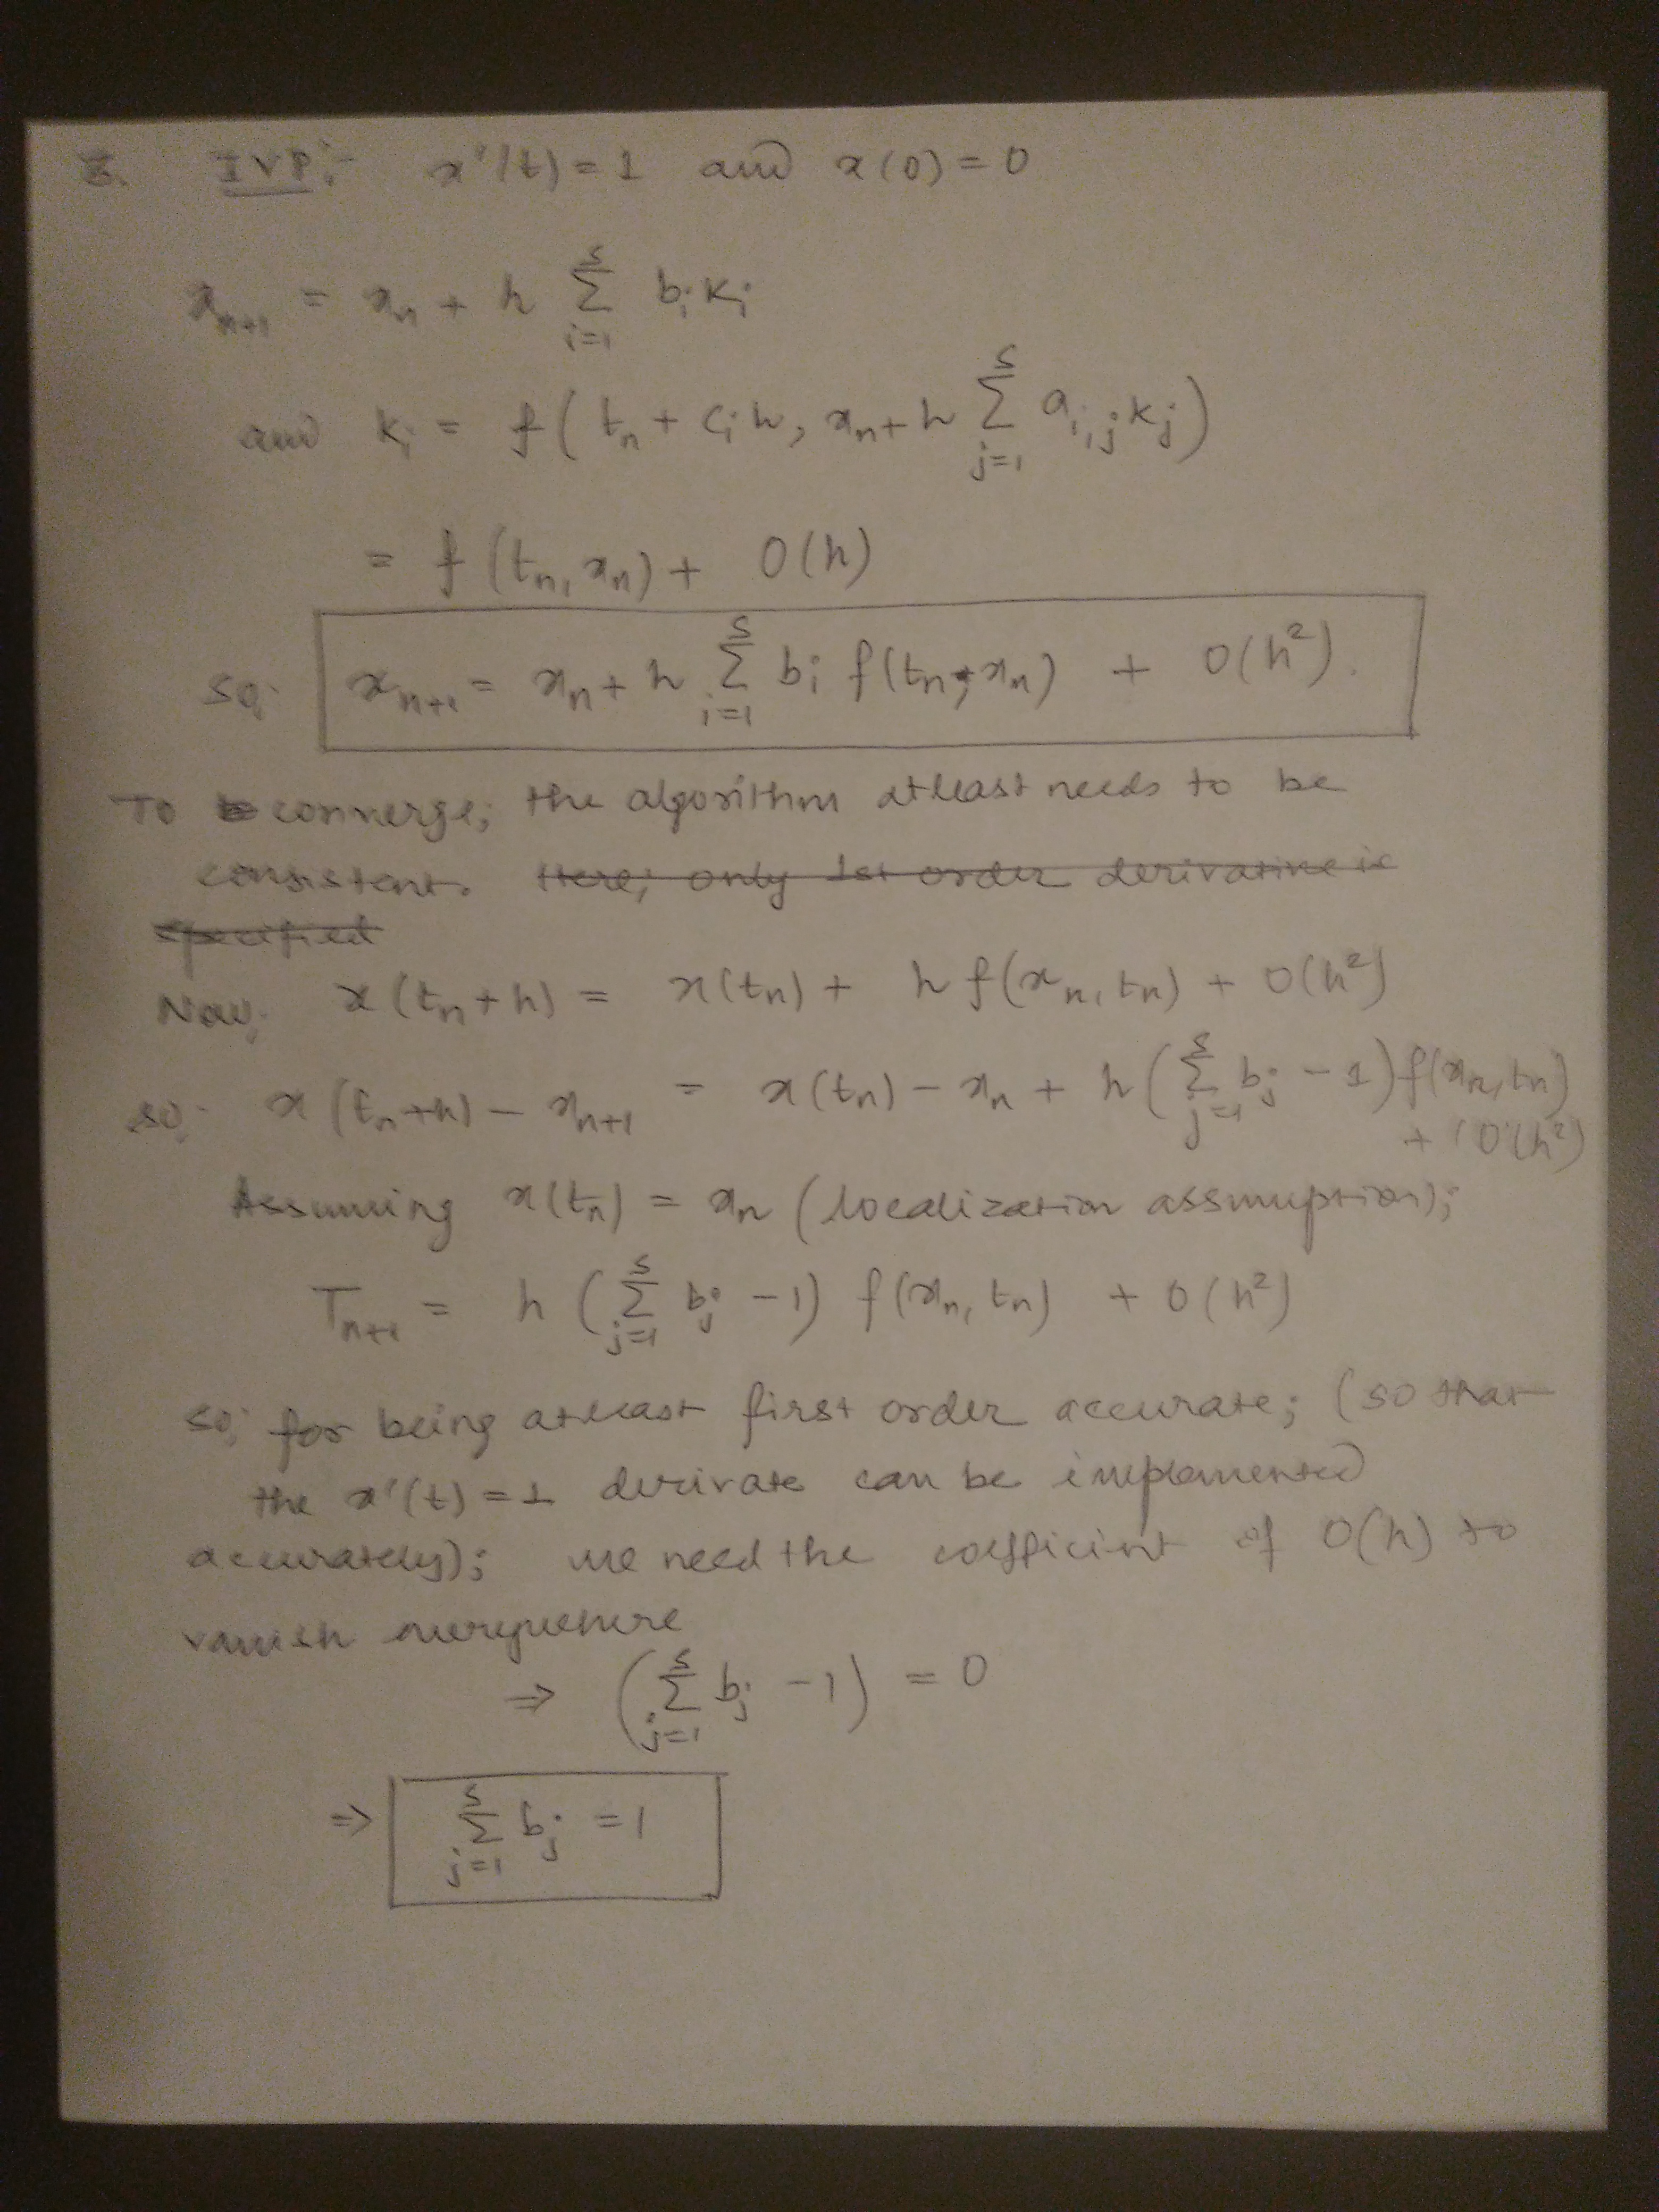 3. IVP:- x'(t) = 1 and x(0) = 0
x_{n+1} = x_n + h \sum_{i=1}^{s} b_i k_i
and k_i = f( t_n + c_i h, x_n + h \sum_{j=1}^{s} a_{i,j} k_j )
= f (t_n, x_n) + O(h)
so, x_{n+1} = x_n + h \sum_{i=1}^{s} b_i f(t_n, x_n) + O(h^2).
To converge; the algorithm atleast needs to be
consistent. Here; only 1st order derivative is
specified
Now, x(t_n + h) = x(t_n) + h f(x_n, t_n) + O(h^2)
so, x(t_n + h) - x_{n+1} = x(t_n) - x_n + h ( \sum_{j=1}^{s} b_j - 1 ) f(x_n, t_n)
+ O(h^2)
Assuming x(t_n) = x_n (localization assmuption);
T_{n+1} = h ( \sum_{j=1}^{s} b_j - 1 ) f(x_n, t_n) + O(h^2)
so, for being atleast first order accurate; (so that
the x'(t) = 1 derivate can be implemented
accurately); we need the coefficient of O(h) to
vanish everywhere
⇒ ( \sum_{j=1}^{s} b_j - 1 ) = 0
⇒ \sum_{j=1}^{s} b_j = 1